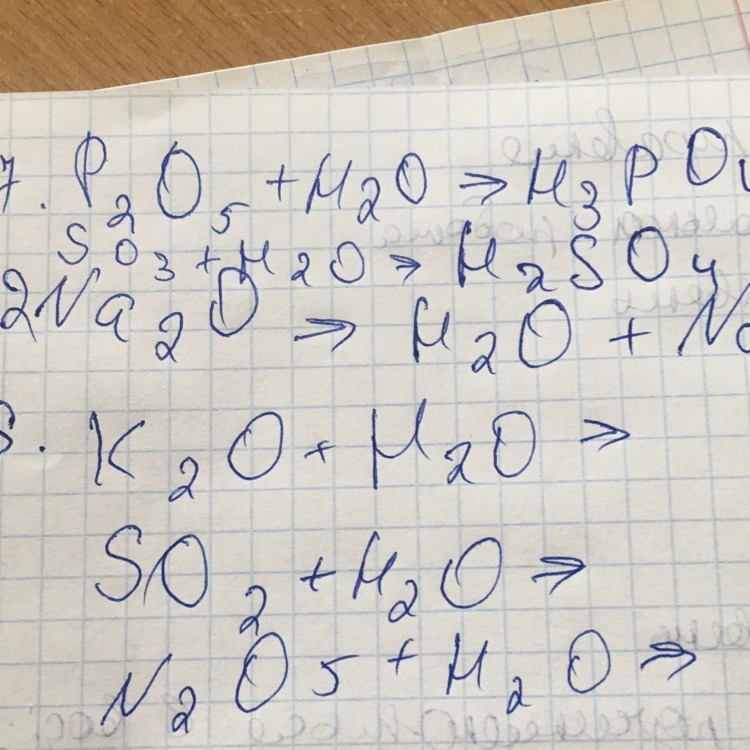 7. P₂O₅ + H₂O → H₃PO₄
SO₃ + H₂O → H₂SO₄
2Na₂O → H₂O + Na
8. K₂O + H₂O →
SO₂ + H₂O →
N₂O₅ + H₂O →